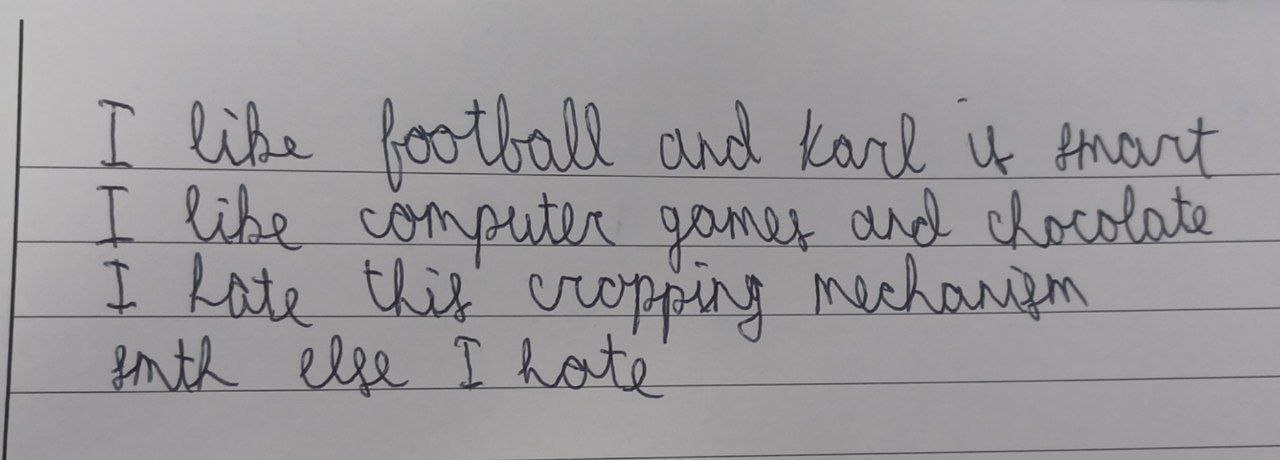 I like football and Karl is smart
I like computer games and chocolate
I hate this cropping mechanism
smth else I hate